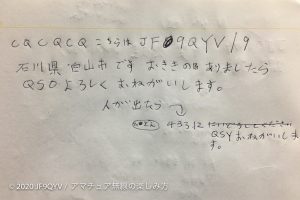 CQCQCQ こちらは JF9QYV/9
石川県白山市です おききの日ありましたら
QSOよろしくおねがいします。
人が出たなら
433.12
QSYおねがいしま
す。
© 2020 JF9QYV / アマチュア無線の楽しみ方